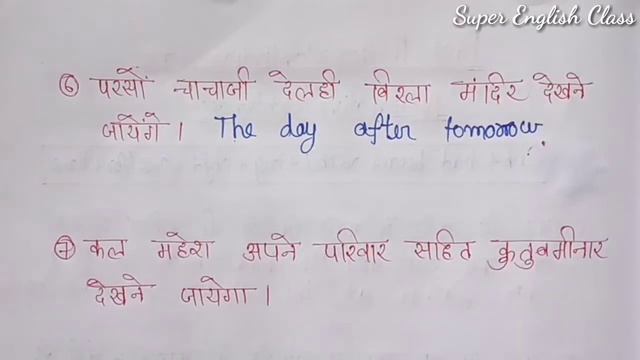 Super English Class
६ परसों चाचाजी देलही बिरला मंदिर देखने
जायेंगे। The day after tomorrow
७ कल महेश अपने परिवार सहित कुतुबमीनार
देखने जायेगा।